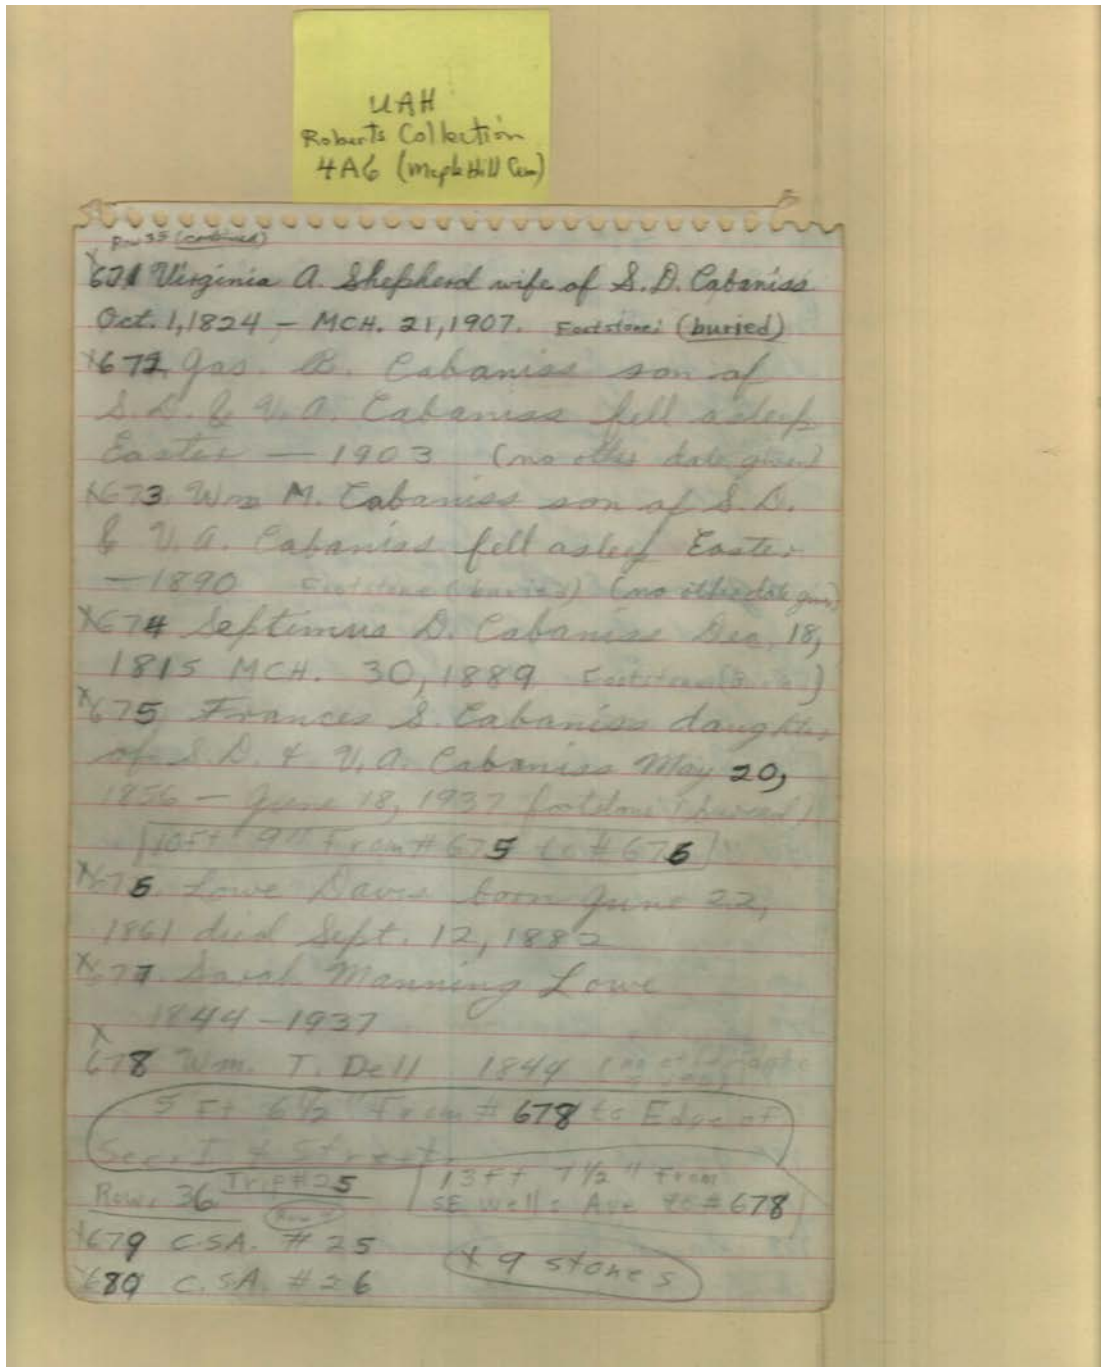 UAH
Roberts Collection
4A6 (Maple Hill Cem)
Row 35 (continued)
X 671 Virginia A. Shepherd wife of S.D. Cabaniss
Oct. 1, 1824 – MCH. 21, 1907. Footstone: (buried)
X 672 Jas. B. Cabaniss son of
S.D. & V.A. Cabaniss fell asleep
Easter — 1903 (no other date given)
X 673. Wm M. Cabaniss son of S.D.
& V.A. Cabaniss fell asleep Easter
— 1890 Footstone (buried) (no other date given)
X 674 Septimus D. Cabaniss Dec. 18,
1815 MCH. 30, 1889 Footstone (Buried)
X 675 Frances S. Cabaniss daughter
of S.D. & V.A. Cabaniss May 20,
1856 – June 18, 1937 footstone (buried)
10 Ft 9" From # 675 to # 676
X 676. Lowe Davis born June 22,
1861 died Sept. 12, 1882
X 677. Sarah Manning Lowe
1844 – 1937
X 678 Wm. T. Dell 1844
5 Ft 6 1/2" From # 678 to Edge of
Sec. I & Street.
Row 36 Trip # 25
13 Ft 7 1/2" From
SE Wells Ave to # 678
X 679 C.S.A. # 25
X 9 stones
X 680 C.S.A. # 26